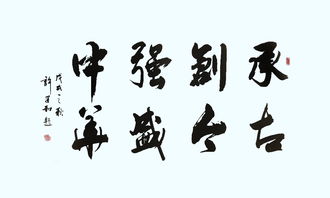 承古
創今
强盛
中華
戊戌之秋
許 題